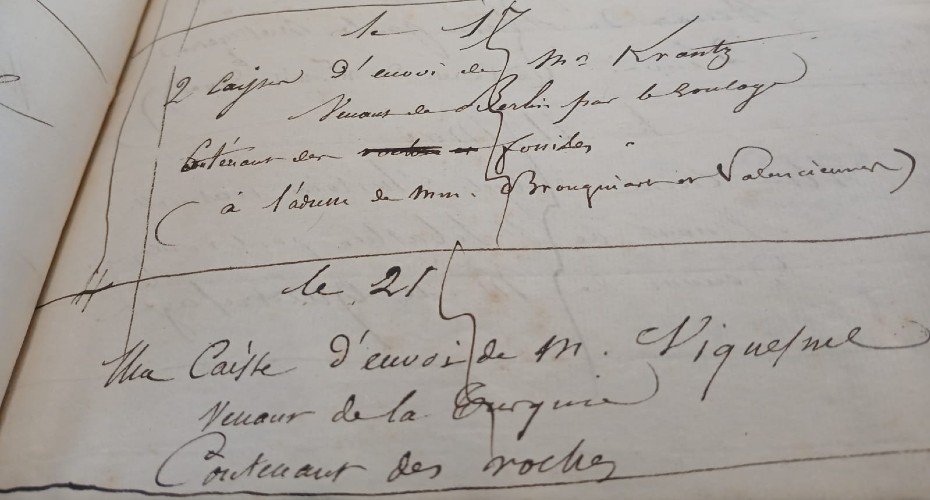 le 17
2 Caisses d'envoi de Mr Krantz
Venant de Berlin par le Roulage
Contenant des roches et fossiles
(à l'adresse de mm. Brongniart et Valenciennes)
le 21
Une Caisse d'envoi de M. Viquesnel
Venant de la Turquie
Contenant des roches